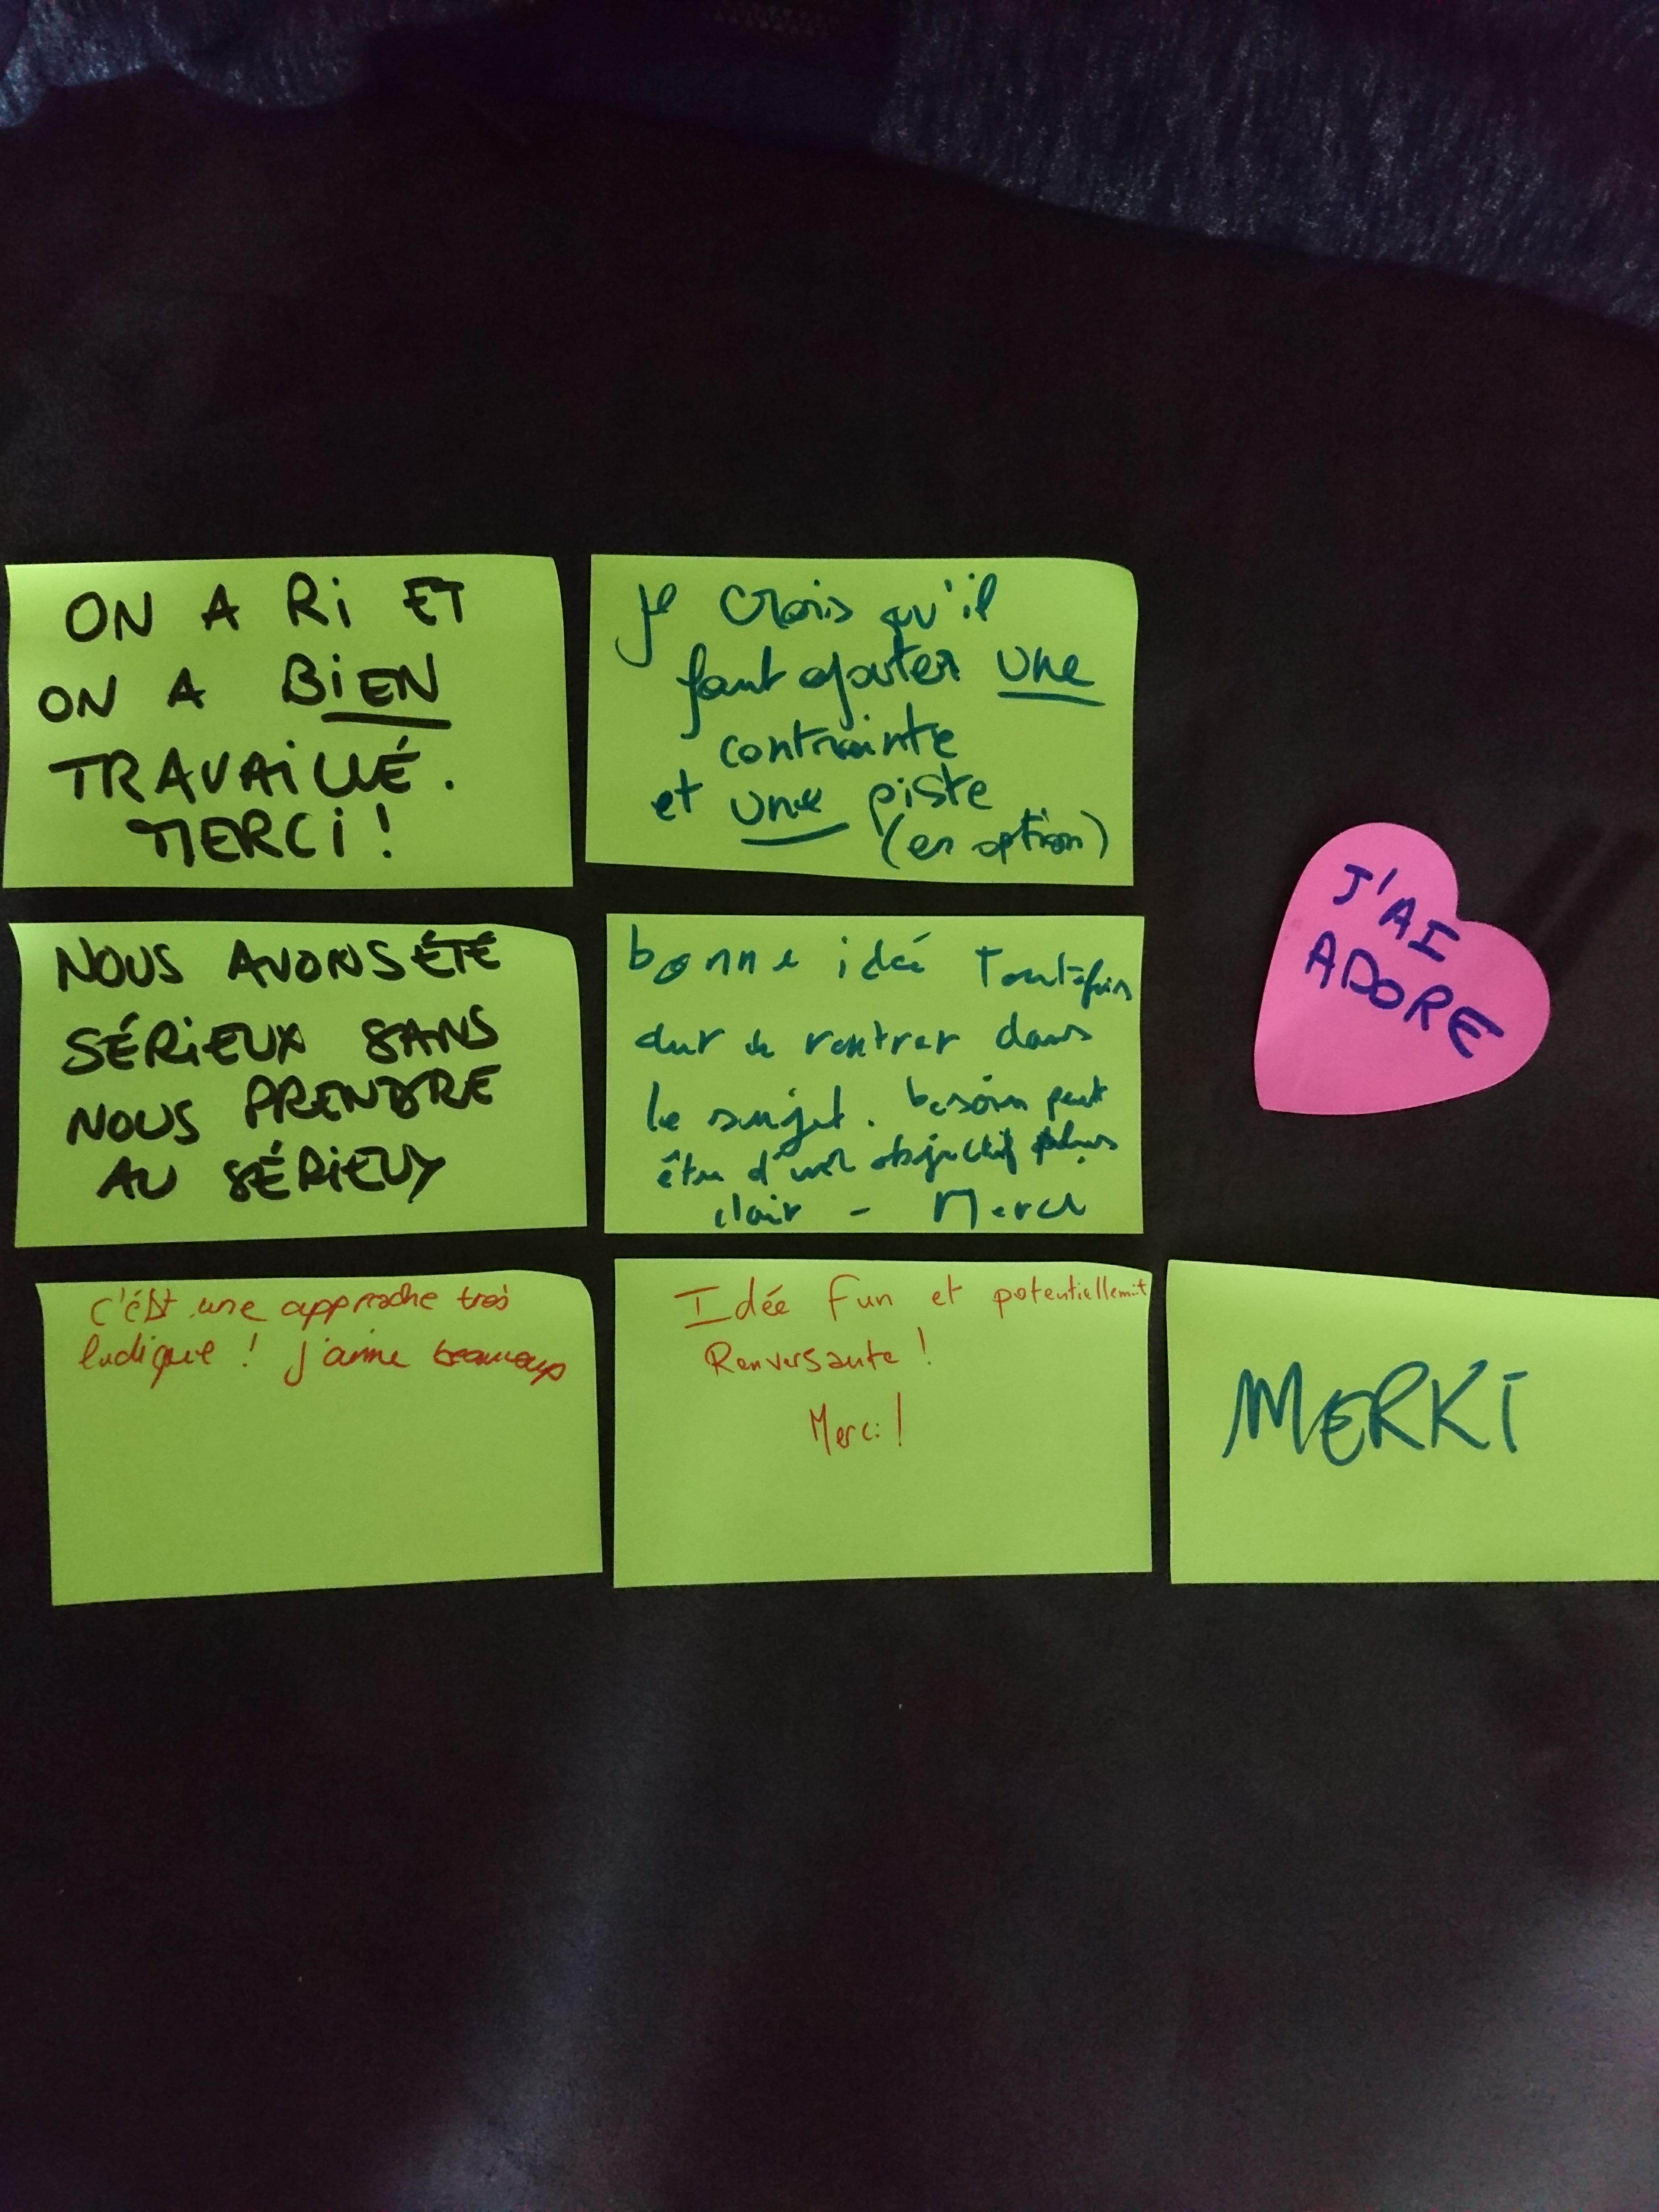 ON A Ri ET
ON A BiEN
TRAVAiLLÉ.
MERCi!
je crois qu'il
faut ajouter une
contrainte
et une piste
(en option)
J'AI
ADORE
NOUS AVONS ÉTÉ
SÉRiEUX SANS
NOUS PRENDRE
AU SÉRiEUX
bonne idée Toutefois
dur de rentrer dans
le sujet. besoin peut
être d'un objectif plus
clair - Merci
c'est une approche très
ludique ! j'aime beaucoup
Idée Fun et potentiellement
Renversante !
Merci !
MERKI